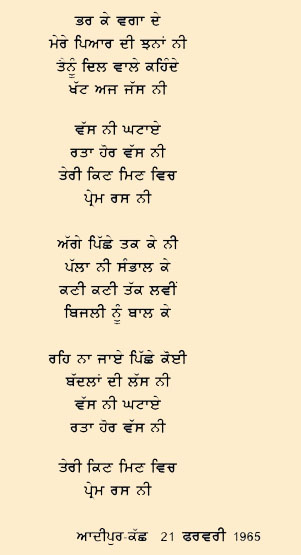 ਭਰ ਕੇ ਵਗਾ ਦੇ
ਮੇਰੇ ਪਿਆਰ ਦੀ ਝਨਾਂ ਨੀ
ਤੈਨੂੰ ਦਿਲ ਵਾਲੇ ਕਹਿੰਦੇ
ਖੱਟ ਅਜ ਜੱਸ ਨੀ
ਵੱਸ ਨੀ ਘਟਾਏ
ਰਤਾ ਹੋਰ ਵੱਸ ਨੀ
ਤੇਰੀ ਕਿਣ ਮਿਣ ਵਿਚ
ਪ੍ਰੇਮ ਰਸ ਨੀ
ਅੱਗੇ ਪਿੱਛੇ ਤਕ ਕੇ ਨੀ
ਪੱਲਾ ਨੀ ਸੰਭਾਲ ਕੇ
ਕਣੀ ਕਣੀ ਤੱਕ ਲਵੀਂ
ਬਿਜਲੀ ਨੂੰ ਬਾਲ ਕੇ
ਰਹਿ ਨਾ ਜਾਏ ਪਿੱਛੇ ਕੋਈ
ਬੱਦਲਾਂ ਦੀ ਲੱਸ ਨੀ
ਵੱਸ ਨੀ ਘਟਾਏ
ਰਤਾ ਹੋਰ ਵੱਸ ਨੀ
ਤੇਰੀ ਕਿਣ ਮਿਣ ਵਿਚ
ਪ੍ਰੇਮ ਰਸ ਨੀ
ਆਦੀਪੁਰ-ਕੱਛ 21 ਫਰਵਰੀ 1965